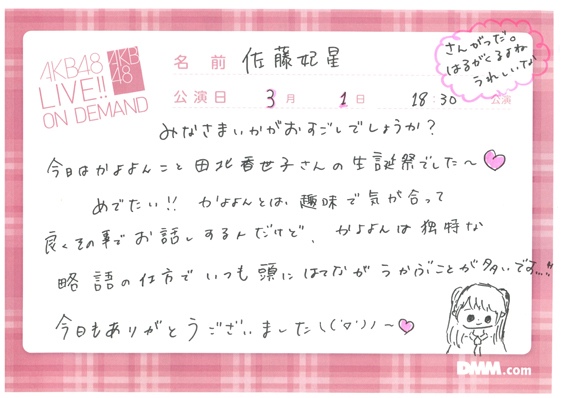 AKB48
LIVE!!
ON DEMAND
AKB
48
名 前 佐藤妃星
公演日 3月 1日 18:30 公演
さんがつだ。
はるがくるよね
うれしいな
みなさまいかがおすごしでしょうか?
今日はかよよんこと田北香世子さんの生誕祭でした〜
めでたい!! かよよんとは、趣味で気が合って
良くその事でお話しするんだけど、かよよんは独特な
略語の仕方でいつも頭にはてながうかぶことが多いです...!!
今日もありがとうございました\(('▽'))ノ〜
DMM.com